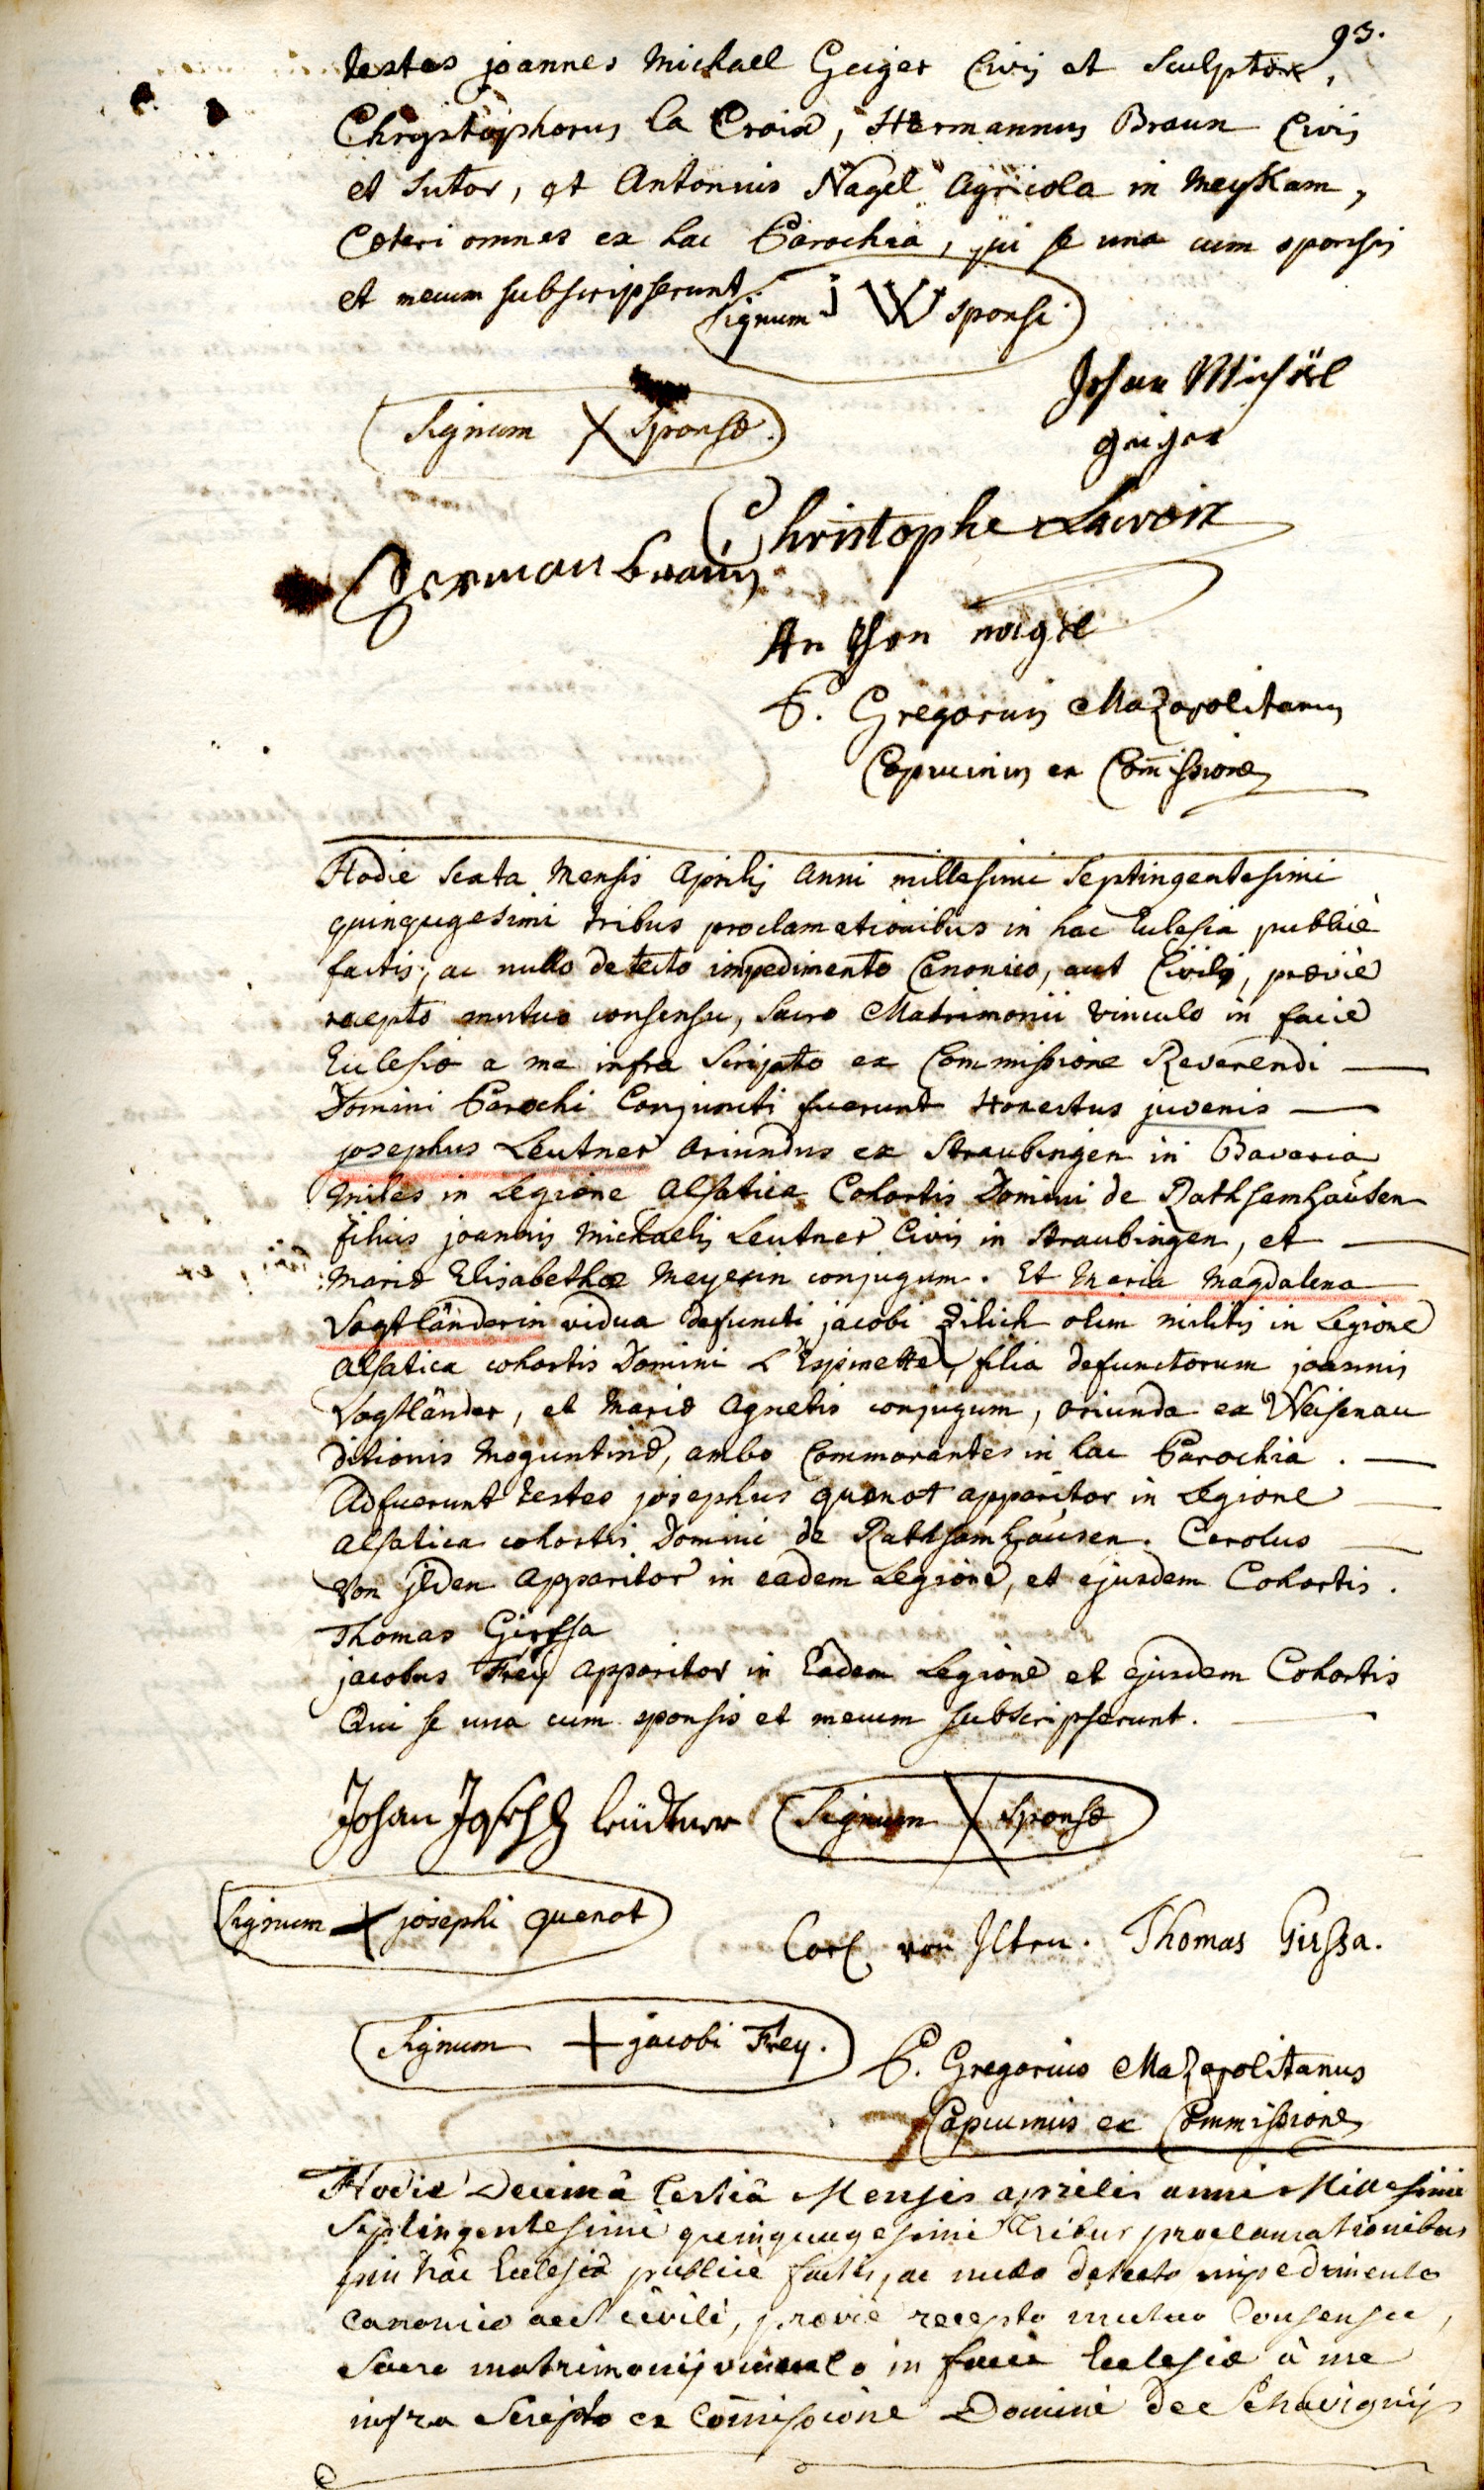 93.
testes joannes Michael Geiger Civis et Sculptor,
Chrystophorus la Croix, Hermannus Braun Civis
et Sutor, et Antonius Nagel agricola in Meykam,
Cæteri omnes ex hac Parochia, qui se una cum sponsis
et mecum subscripserunt.
Signum J W sponsi
Johan Michäel
geiger
Signum X Sponsæ.
Christophe Lacroix
Herman Braun
Anthon nagel
P. Gregorius Mazopolitanus
Capucinus ex Com̄issione
Hodie Sexta Mensis Aprilis Anni millesimi Septingentesimi
quinqugesimi tribus proclamationibus in hac Eclesia publicè
factis, ac nullo detecto impedimento Canonico, aut Civili, præviè
recepto mutuo consensu, Sacro Matrimonii vinculo in facie
Eclesiæ a me infra Scripto ex Commissione Reverendi
Domini Parochi Conjuncti fuerunt Honestus juvenis
josephus Leutner oriundus ex Straubingen in Bavaria
Miles in Legione Alsatica Cohortis Domini de Rathsamhaúsen
filius joannis Michaelis Leutner Civis in Straubingen, et
Mariæ Elisabethæ Meyerin conjugum. Et Maria Magdalena
Vogtländerin vidua defuncti jacobi Zilich olim militis in Legione
Alsatica cohortis Domini L'Espinette, filia defunctorum joannis
Vogtländer, et Mariæ Agnetis conjugum, oriunda ex Weisenau
ditionis Moguntinæ, ambo Commorantes in hac Parochia.
Adfuerunt testes josephus quenot apparitor in Legione
Alsatica cohortis Domini de Rathsamhaúsen. Carolus
Von jlden Apparitor in eadem Legione, et ejusdem Cohortis.
Thomas Girssa
jacobus Frey apparitor in Eadem Legione et ejusdem Cohortis
Qui se una cum sponsis et mecum subscripserunt.
Johan Joseph leüdtner Signum X Sponsæ
Signum X josephi quenot
Carl von Jlten. Thomas Girßa.
Signum + jacobi Frey.
P. Gregorius Mazopolitanus
Capucinus ex Commissione
Hodie Decimâ tertiâ Mensis aprilis anni Millesimi
Septingentesimi quinquagesimi tribus proclamationibus
in hâc Ecclesiâ publicè factis, ac nullo detecto impedimento
canonico aut civili, præviè recepto mutuo Consensu,
Sacro matrimonij vinculo in facie Ecclesiæ à me
infra Scripto ex Com̄issione Domini de Schavignij